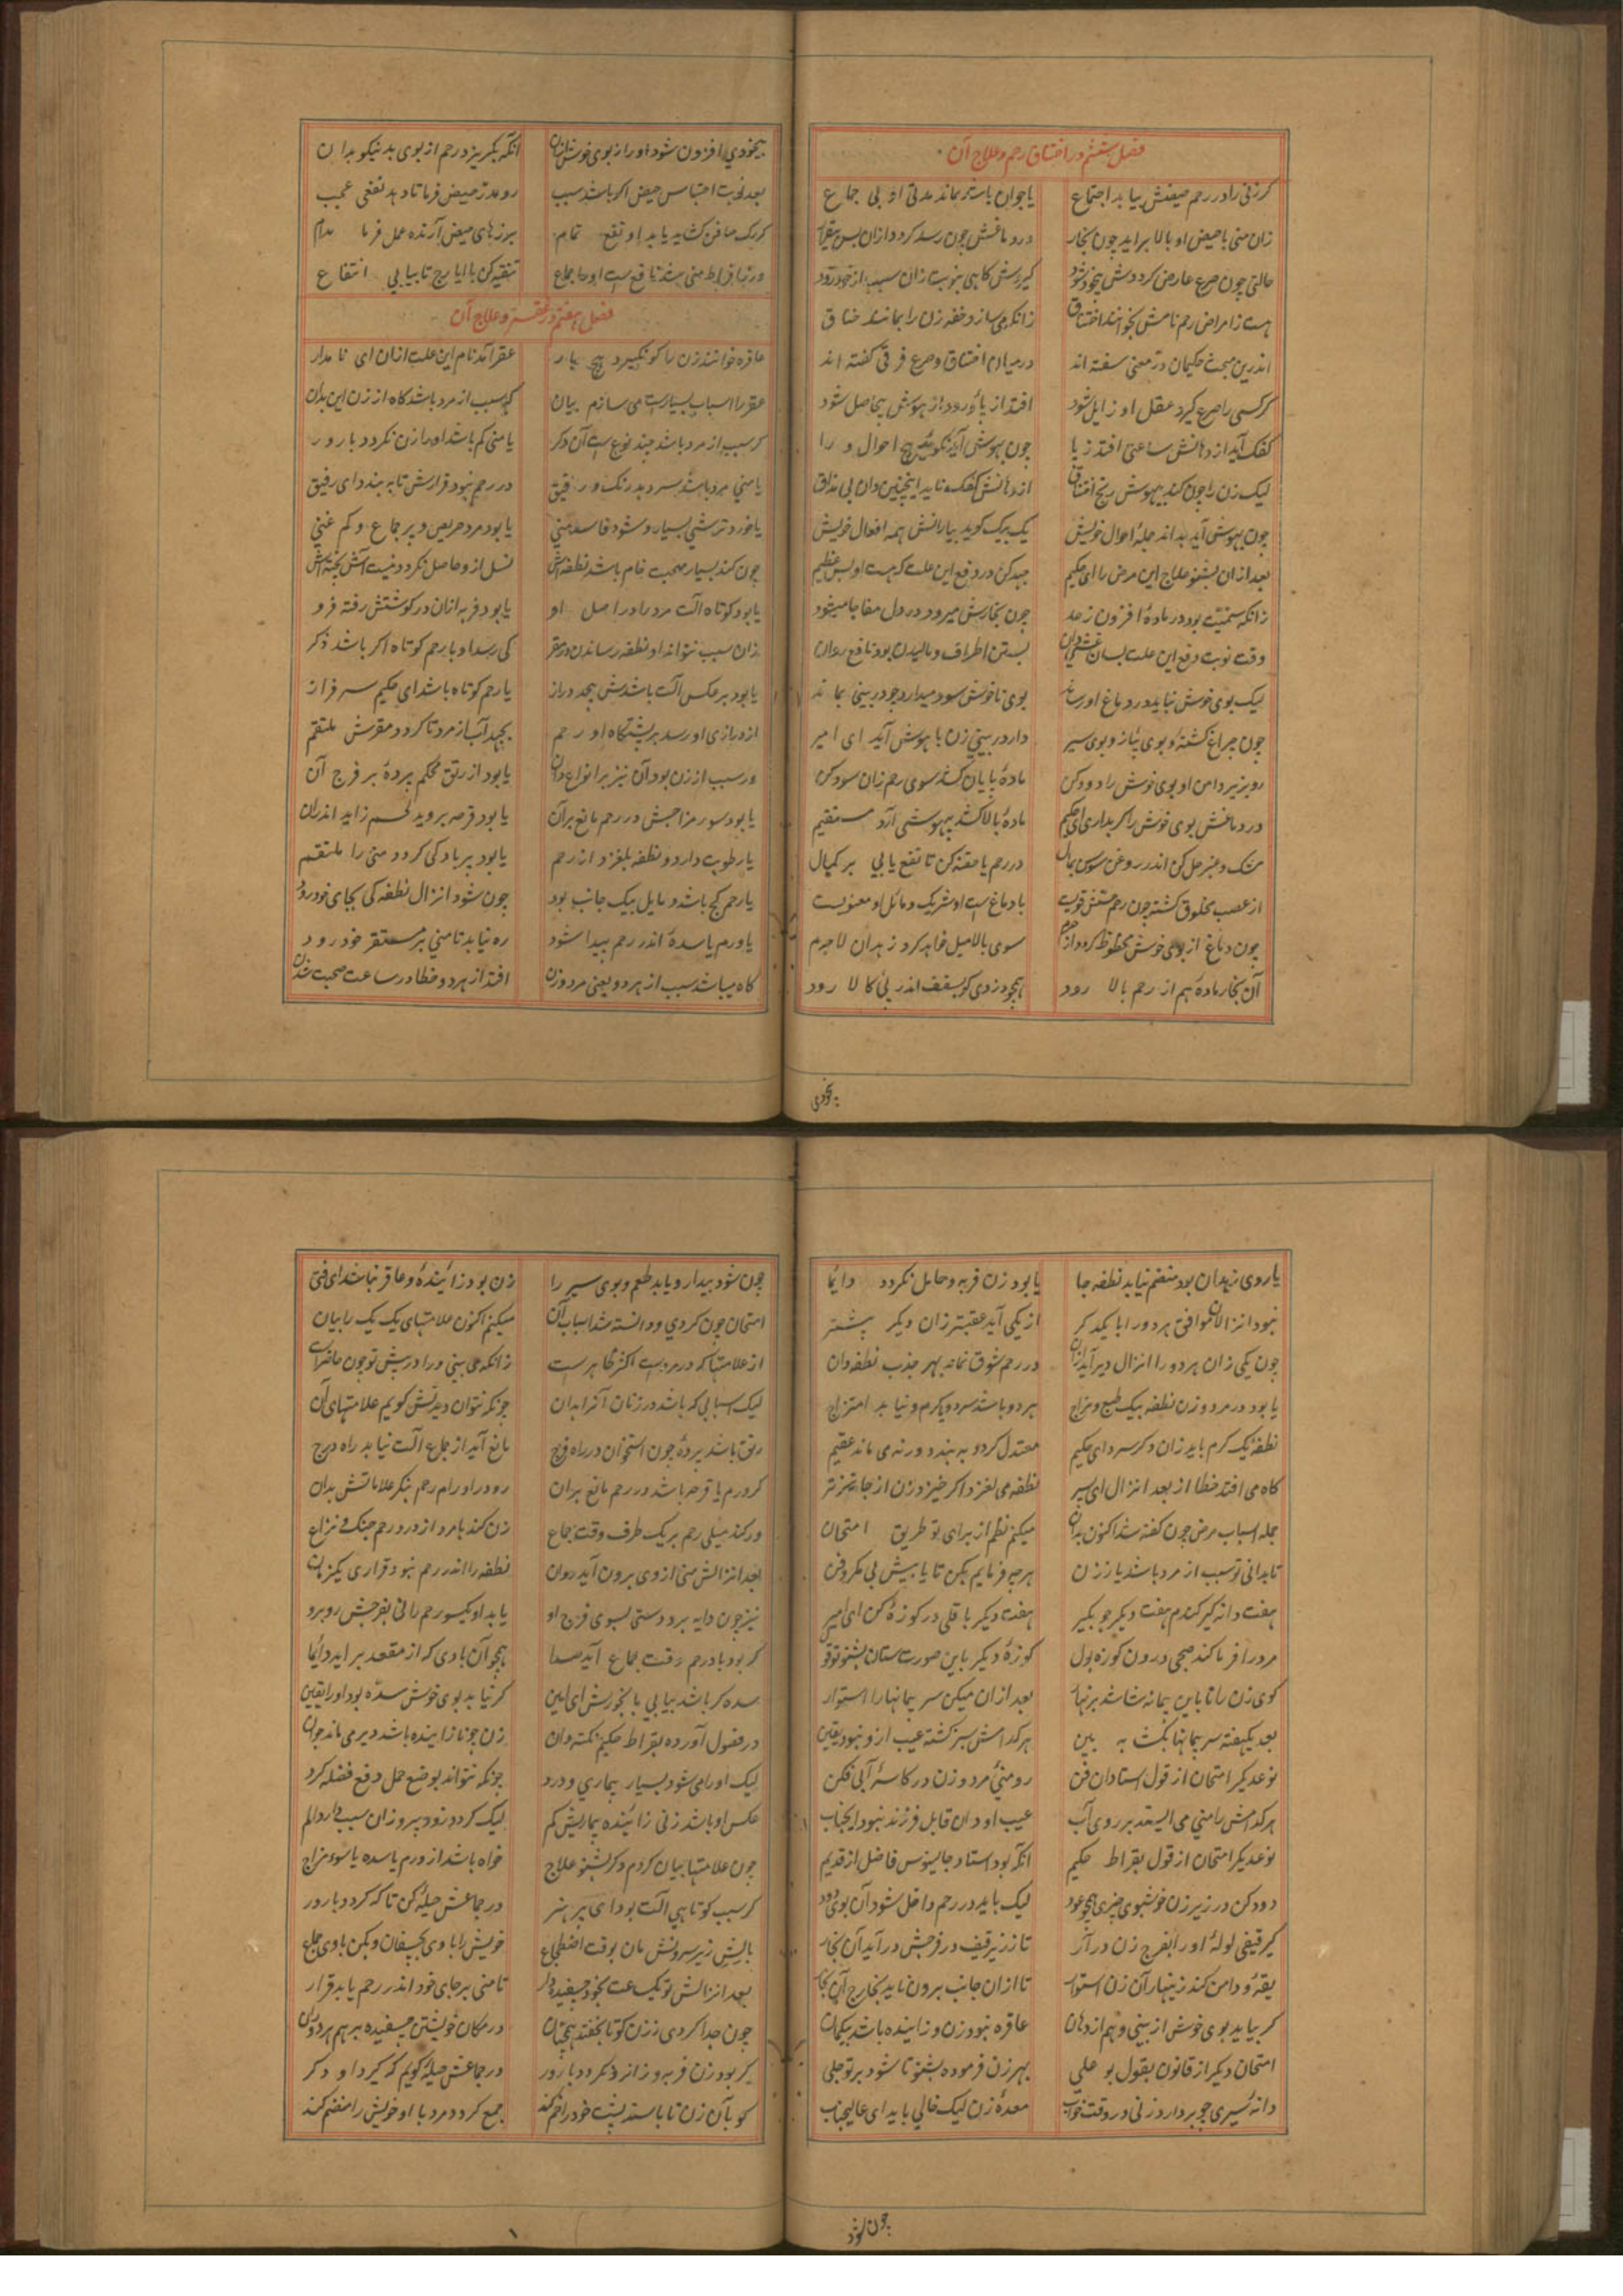 فصل ششم در اختناق رحم و علاج آن
گر زنی را در رحم حیضش بیابد اجتماع یا جوان باشد بماند مدتی او بی جماع
زان منی یا حیض او بالا براید چون بخار در دماغش چون رسد گردد ازان بس بیقرار
حالتی چون صرع عارض گرددش بیخود شود گیردش گاهی بنوبت زان سبب از خود رود
هست زامراض رحم نامش بخوانند اختناق زانکه می سازد خفه زن را بمانند خناق
اندرین مبحث حکیمان در معنی سفته اند درمیان اختناق و صرع فرقی گفته اند
گر کسی را صرع گیرد عقل او زایل شود افتد از پا و رود از هوش بیحاصل شود
کفک آید از دهانش ساعتی افتد ز پا چون بهوش آید نگوید هیچ احوال و را
لیک زن را چون کند بیهوش رنج اختناق از دهانش کفک ناید اینچنین دان بی نفاق
چون بهوش آید بداند جمله احوال خویش یک بیک گوید بیارانش همه افعال خویش
بعد ازان بشنو علاج این مرض را ای حکیم جهد کن در دفع این علت که هست او بس عظیم
زانکه سمیت بود در ماده افزون ز حد چون بخارش میرود در دل مفاجا میشود
وقت نوبت دفع این علت بسان غشی دان بستن اطراف و مالیدن بود نافع روان
لیک بوی خوش نباید در دماغ او رساند بوی ناخوش سود میدارد چو در بینی بماند
چون چراغ کشته و بوی پیاز و بوی سیر دار در بینی زن با هوش آید ای امیر
رو بزیر دامن او بوی خوش را دود کن ماده پایان کشد سوی رحم زان سود کن
در دماغش بوی خوش را گر بداری ای حکیم ماده بالا کشد بیهوشی آرد مستقیم
مشک و عنبر حل کن اندر روغن سوسن بمال در رحم یا حقنه کن تا نفع یابی بر کمال
از عصب مخلوق گشته چون رحم حسش قویست با دماغ است او شریک و مائل او معنویست
چون دماغ از بوی خوش محظوظ گردد از حرم سوی بالا میل خواهد کرد زهدان لاجرم
آن بخار ماده هم از رحم بالا رود همچو دزدی کو بسقف اندر پی کالا رود
بیخودی
بیخودی افزون شود او را ز بوی خوش بدان انکه بگریزد رحم از بوی بد نیکو بدان
بعد نوبت احتباس حیض اگر باشد سبب رو مدر حیض فرما تا دهد نفعی عجب
گر رگ صافن گشاید یابد او نفع تمام برزهای حیض آرنده عمل فرما مدام
ور ز افراط منی شد نافع است او را جماع تنقیه کن با ایارج تا بیابی انتفاع
فصل هفتم در عقر و علاج آن
عاقره خوانند زن را کو نگیرد هیچ بار عقر آمد نام این علت ازان ای نامدار
عقر را اسباب بسیارست می سازم بیان گه سبب از مرد باشد گاه از زن این بدان
گر سبب از مرد باشد چند نوع است آن دگر یا منی کم باشد او را زن نگردد بارور
یا منی مرد باشد سرد و بدرنگ و رقیق در رحم نبود قرارش تا به بندد ای رفیق
یا خورد ترشی بسیار و شود فاسد منی یا بود مرد حریص و پر جماع و کم غنی
چون کند بسیار صحبت خام باشد نطفه اش نسل ازو حاصل نگردد نیست آتش پخته اش
یا بود کوتاه الت مرد را در اصل او یا بود فربه ازان در گوشتش رفته فرو
زان سبب نتواند او نطفه رساندن در مقر کی رسد او با رحم کوتاه اگر باشد ذکر
یا بود برعکس آلت باشدش بیحد دراز یا رحم کوتاه باشد ای حکیم سرفراز
از درازی او رسد بر پیشگاه او رحم بجهد آب از مرد تا گردد مقرش ملتقم
ور سبب از زن بود آن نیز بر انواع دان یا بود از رتق محکم پرده بر فرج آن
یا بود سوء مزاجش در رحم مانع بران یا بود قرحه بروید لحم زاید اندران
یا رطوبت دارد و نطفه بلغزد از رحم یا بود پر باد کی گردد منی را ملتقم
یا رحم کج باشد و مایل بیک جانب بود چون شود انزال نطفه کی بجای خود رود
یا ورم یا سده اندر رحم پیدا شود ره نیابد تا منی بر مستقر خود رود
گاه میباشد سبب از هر دو یعنی مرد و زن افتد از هر دو خطا در ساعت صحبت شدن
یا روی زهدان بود منضم نیابد نطفه جا یا بود زن فربه و حامل نگردد دائما
نبود انزال موافق هر دو را با یکدگر از یکی آید عقبتر زان دیگر پیشتر
چون یکی زان هر دو را انزال دیر آید زان در رحم شوق نماند بهر جذب نطفه دان
یا بود در مرد و زن نطفه بیک طبع و مزاج هر دو باشد سرد و یا گرم و نیابد امتزاج
نطفه یک گرم باید زان دگر سرد ای حکیم معتدل گردد به بندد ورنه می ماند عقیم
گاه می افتد خطا از بعد انزال ای پسر نطفه می لغزد اگر خیزد زن از جا زودتر
جمله اسباب مرض چون گفته شد اکنون بدان میکنم نظم از برای تو طریق امتحان
تا بدانی تو سبب از مرد باشد یا ز زن هرچه فرمایم بکن تا یابیش بی مکر و فن
هفت دانه گیر گندم هفت دیگر جو بگیر هفت دیگر باقلی در کوزه کن ای امیر
مرد را فرما کند صبحی درون کوزه بول کوزه دیگر باین صورت ستان بشنو تو قول
گوی زن را تا باین پیمانه شاشد بر نهار بعد ازان میکن سر پیمانها را استوار
بعد یکهفته سر پیمانها بگشا به بین هر کدامش سبز گشته عیب ازو نبود یقین
نوع دیگر امتحان از قول استادان فن رو منی مرد و زن در کاسه آبی فکن
هر کدامش را منی می ایستد بر روی آب عیب او دان قابل فرزند نبود ایجناب
نوع دیگر امتحان از قول بقراط حکیم انکه بود استاد جالینوس فاضل از قدیم
دود کن در زیر زن خوشبوی چیزی همچو عود لیک باید در رحم داخل شود آن بوی دود
گیر قیفی لوله او را بفرج زن درآر تا ز زیر قیف در فرجش درآید آن بخار
یقه و دامن کند زینهار آن زن استوار تا ازان جانب برون ناید بخارج آن بخار
گر بیاید بوی خوش از بینی و هم از دهان عاقره نبود زن و زاینده باشد بیگمان
امتحان دیگر از قانون بقول بو علی بهر زن فرموده بشنو تا شود بر تو جلی
دانه سیری چو بردارد زنی در وقت خواب معده زن لیک خالی باید ای عالیجناب
چون شود
چون شود بیدار و یابد طعم و بوی سیر را زن بود زاینده و عاقر نباشد ای فتی
امتحان چون کردی و دانسته شد اسباب آن میکنم اکنون علامتهای یک یک را بیان
از علامتها که در مردست اکثر ظاهر است زانکه می بینی و را در پیش تو چون حاضر است
لیک اسبابی که باشد در زنان آنرا بدان چونکه نتوان دیدنش گویم علامتهای آن
رتق باشد پرده چون استخوان در راه فرج مانع آید از جماع الت نیابد راه درج
گر ورم یا قرحه باشد در رحم مانع بران رو در اورام رحم بنگر علاماتش بدان
ور کند میلی رحم بر یک طرف وقت جماع زن کند با مرد از درد رحم جنگ و نزاع
بعد انزالش منی از وی برون آید روان نطفه را اندر رحم نبود قراری یکزمان
نیز چون دایه برد دستی بسوی فرج او یابد او یکسو رحم را نی بفرجش روبرو
گر بود باد رحم وقت جماع آید صدا همچو آن بادی که از مقعد براید دائما
سده گر باشد بیابی با بخورش ای امین گر نیاید بوی خوش سده بود او را یقین
در فصول آورده بقراط حکیم نکته دان زن چو نازاینده باشد دیر می ماند جوان
لیک او را می شود بسیار بیماری و درد چونکه نتواند بوضع حمل دفع فضله کرد
عکس او باشد زنی زاینده بیماریش کم لیک گردد زود پیر و زان سبب دارد الم
چون علامتها بیان کردم دگر بشنو علاج خواه باشد از ورم یا سده یا سوء مزاج
گر سبب کوتاهی آلت بود ای پر هنر در جماعش حیله کن تا که گردد بارور
بالش زیر سرونش مان بوقت اضطجاع خویش را با وی بچسپان و بکن با وی جماع
بعد انزالش تو یک ساعت بخود چسپیده دار تا منی بر جای خود اندر رحم یابد قرار
چون جدا کردی ز زن گو تا بخفتد همچنان در مکان خویشتن چسپیده بر هم هر دو ران
گر بود زن فربه و زانرو نگردد بارور در جماعش حیله گویم که گیرد او دگر
گو بآن زن تا باستد پشت خود را خم کند جمع گردد مرد با او خویش را منضم کند